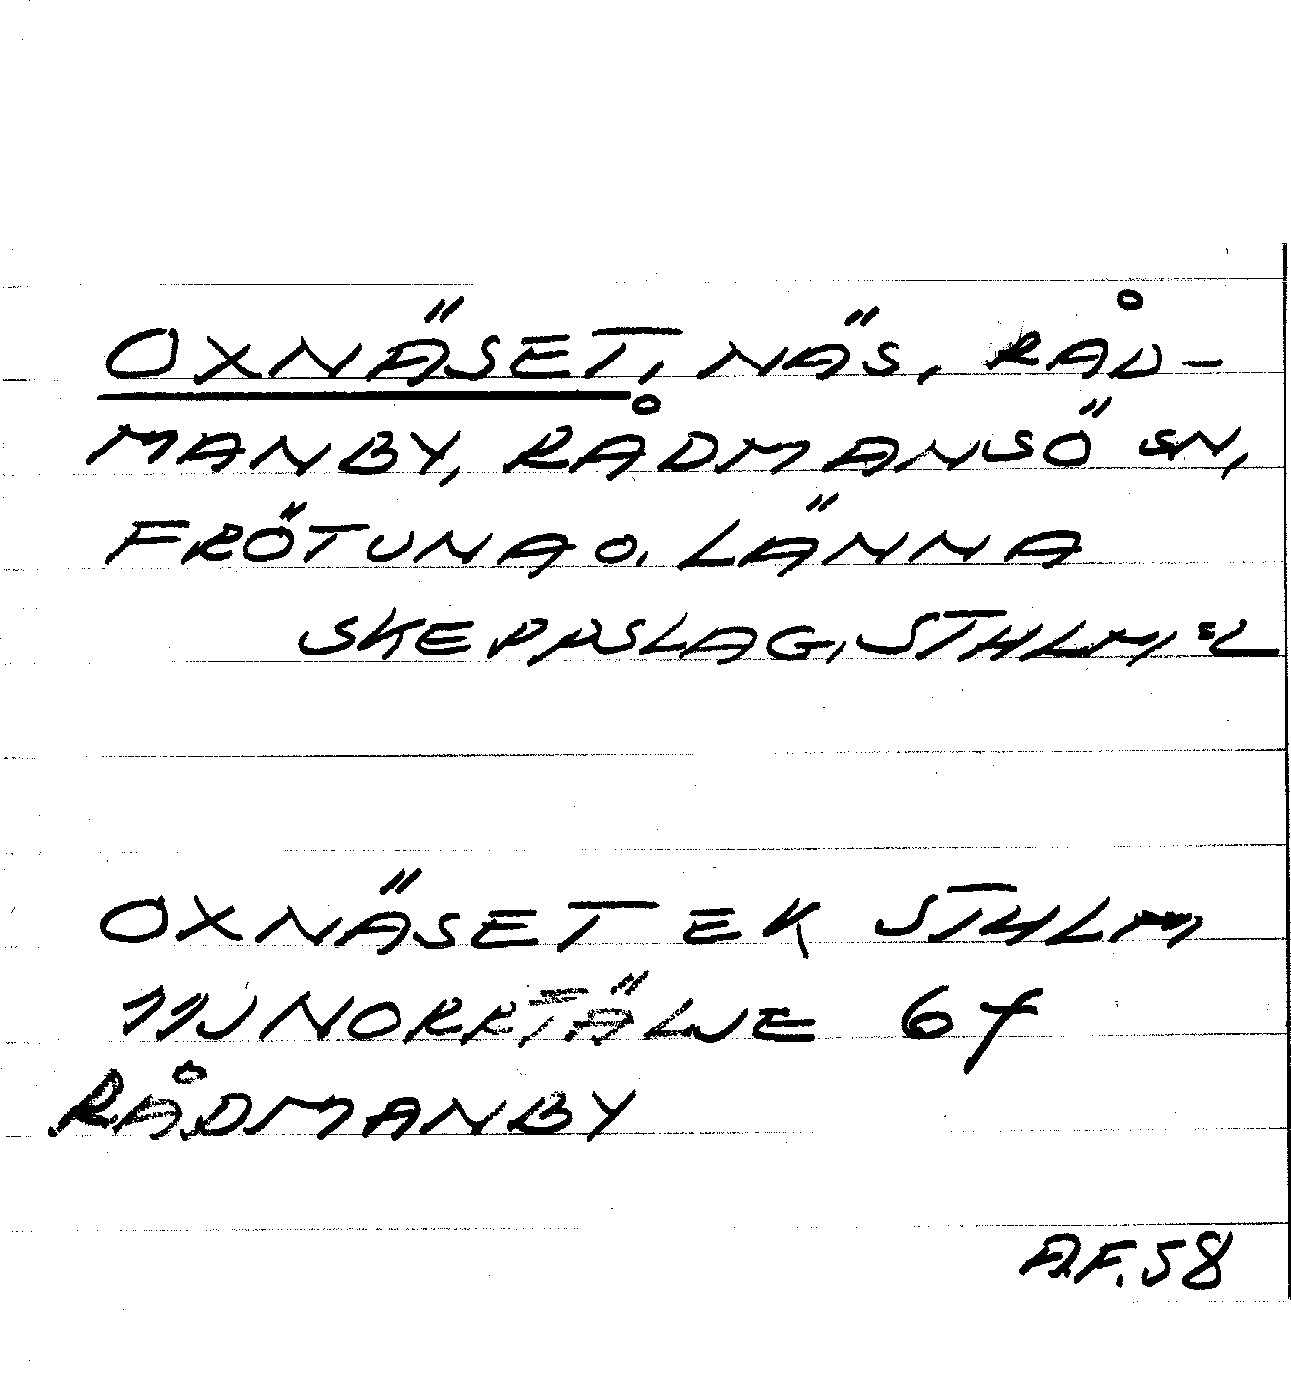 OXNÄSET, NÄS, RÅD-
MANBY, RÅDMANSÖ SN,
FRÖTUNA O. LÄNNA
SKEPPSLAG, STHLM:S L
OXNÄSET EK STHLM
11J NORRTÄLJE 67
RÅDMANBY
A.F. 58